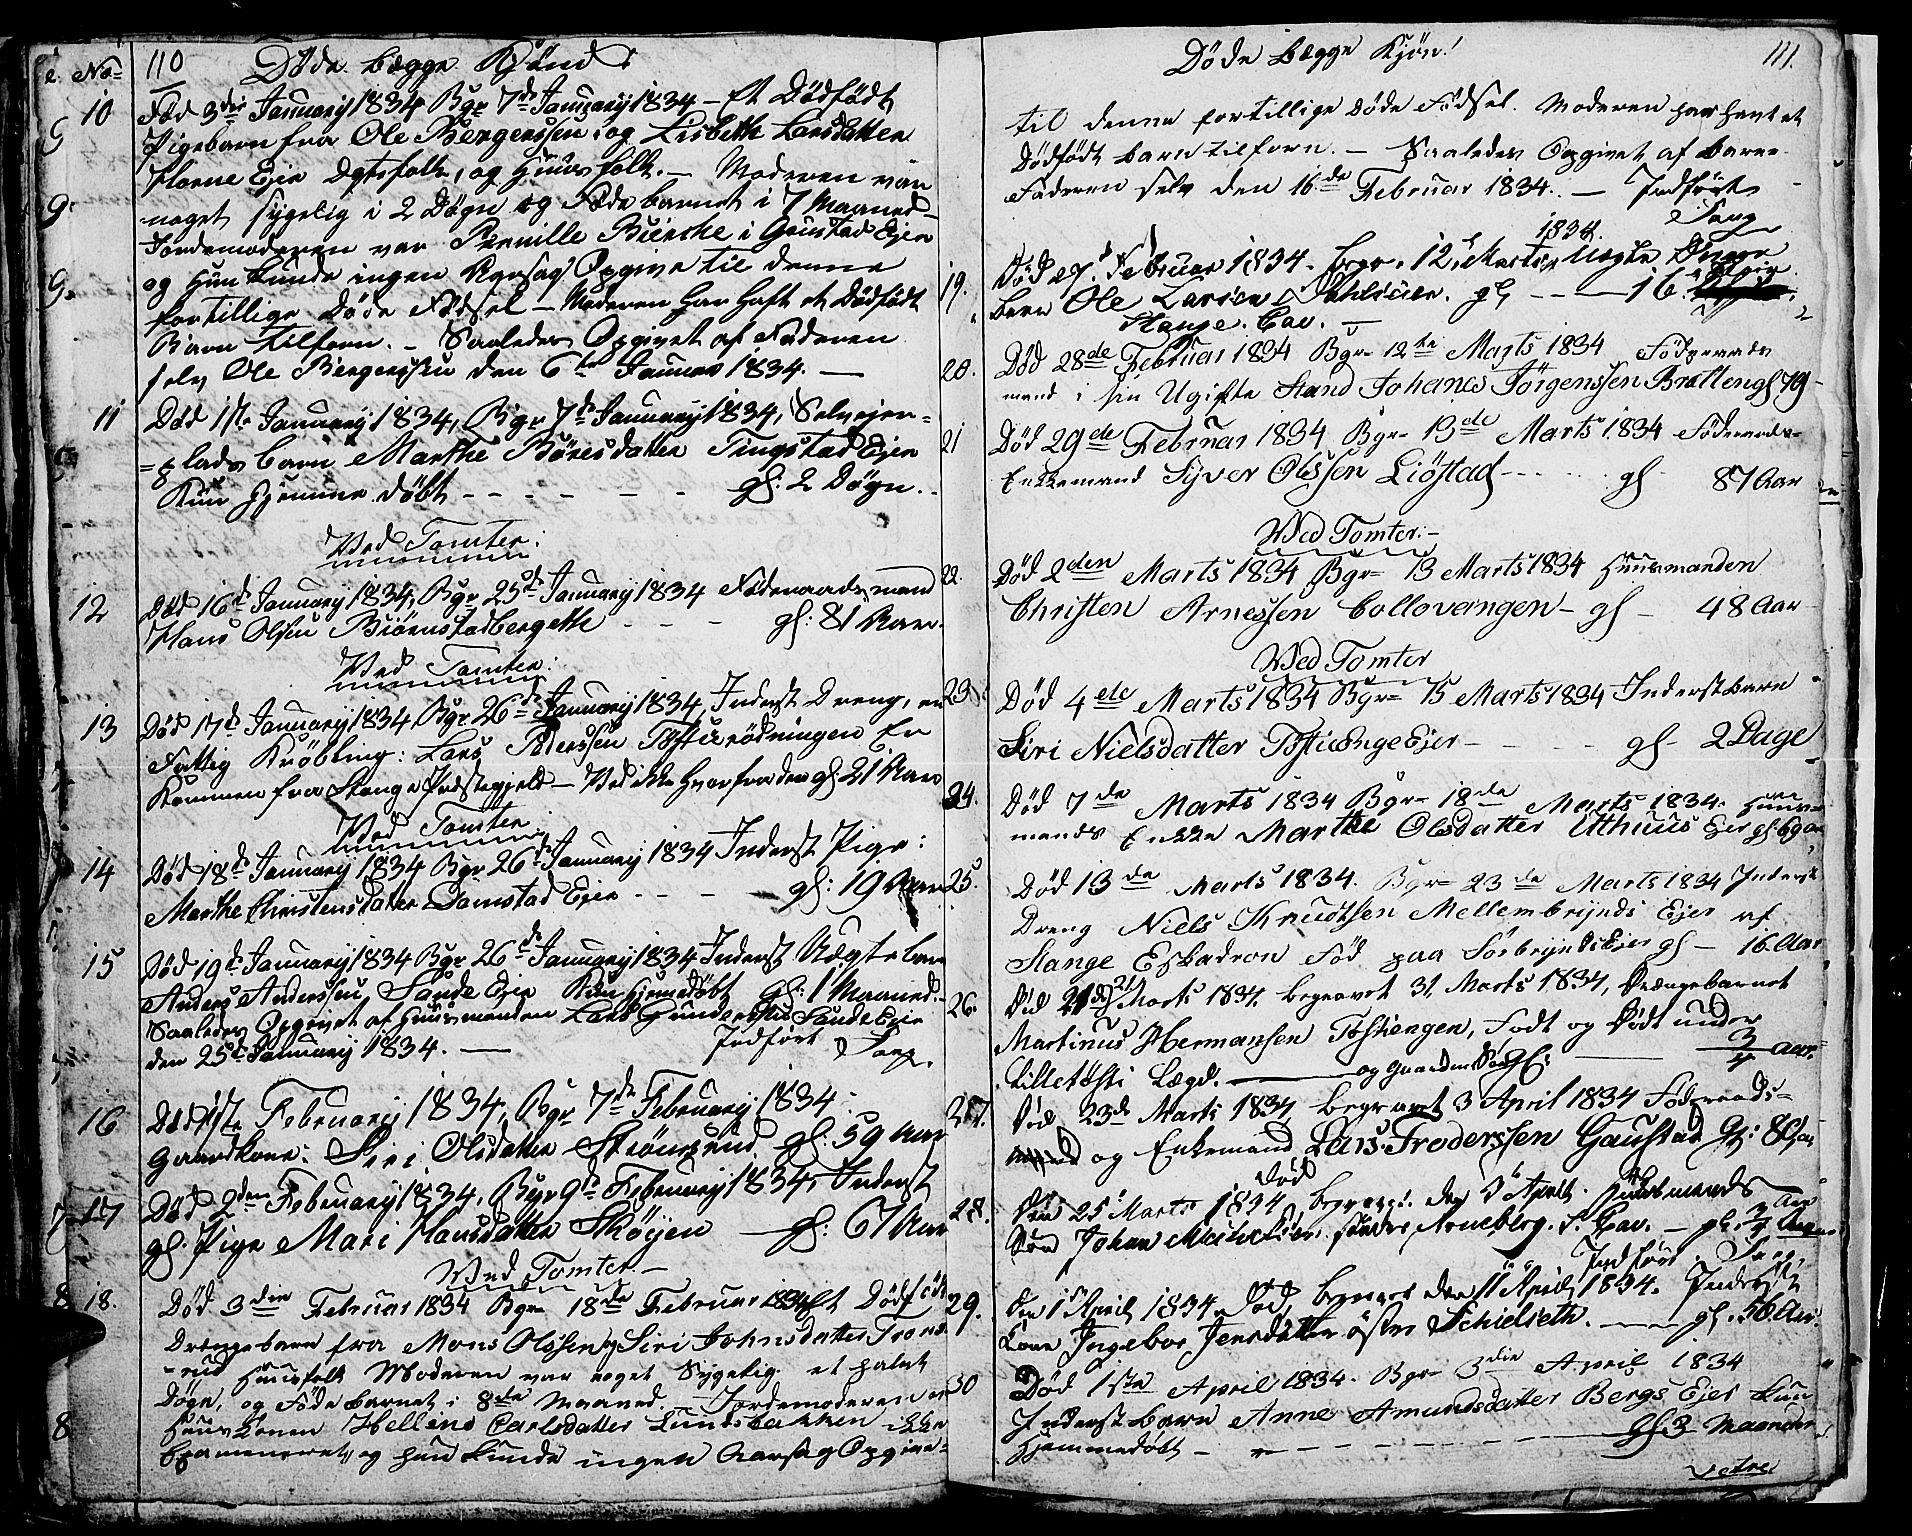 No= 110 Døde begge Kjønd
10 Fød 3die January 1834 Bgr 7de January 1834 – Et Dødfødt
Pigebarn fra Ole Bergerssen og Lisbeth Larsdatter
Horne Eje Ægtefolk, og Huusfolk. – Moderen var
noget sygelig i 2 Døgn og Føde barnet i 7 Maaned
Jordemoderen var Pernille Bierche i Gaustad Ejer
og Hun kunde ingen Aarsag Opgive til denne
fortillige Døde Fødsel – Moderen har Haft et Dødfødt
Barn tilforn. – Saaledes Opgivet af Faderen
selv Ole Bergerssen den 6te Januar 1834. –
11 Død 1ste January 1834, Bgr 7de January 1834, Selvejer=
=plads barn Marthe Børesdatter Tingstad Ejer
Kun hjemme døbt – – – – – – gl: 2 Døgn.
Ved Tomter:
12 Død 16de January 1834, Bgr 25de January 1834 Føderaadsmand
Hans Olsen Biørnstadbergeth – – – gl: 81 Aar.
Ved Tomter:
13 Død 17de January 1834, Bgr 26de January 1834, Inderst Dreng, en
Fattig Krøbling: Lars Pederssen Tøftierødningen Er
Kommen fra Stange Præstegjeld – Ved ikke Hvorfra den gl: 21 Aar
Ved Tomter
14 Død 18de January 1834 Bgr 26de January 1834 Inderst Pige:
Marthe Christensdatter Samstad Ejer – – – gl: 19 Aar
15 Død 19de January 1834 Bgr 26de January 1834 Inderst Uægte barn
Anders Anderssen Sande Ejer Kun hjemdøbt gl: 1 Maaned.
Saaledes Opgivet af Huusmanden Lars Gunderssen Sande Ejer
den 25de January 1834. – Indført Sang.
16 Død 1ste February 1834, Bgr 7de February 1834
Gaardkone: Siri Olsdatter Strømsrud gl: 59 Aar
17 Død 2den February 1834, Bgr 9de February 1834, Inderst
gl. Pige Mari Hansdatter Skøyen – gl: 67 Aar
Wed Tomter. –
18. Død 3die Februar 1834 Bgr= 18de Februar 1834 et Dødfødt
Drengebarn fra Mons Olssen og Siri Johnsdatter Trons
=rud Huusfolk Moderen var noget Sygelig et halvt
Døgn, og Føde barnet i 8de Maaned. – Jordemoderen er
Huus Konen Hellene Carlsdatter Lundsbakken ikke
Examineret og hun kunde ingen Aarsag Opgive=
Døde begge Kjøn! 111.
til denne fortillige døde Fødsel. Moderen har havt et
Dødfødt barn tilforn. – Saaledes Opgivet af barne
Faderen selv den 16de Februar 1834. – Indført
Sang
19. Død 27d Februar 1834. begr. 12t Marts 1834. Uægte Drenge
barn Ole Larsen Dahlsier. gl – – – 16
Stange. Cav. –
20. Død 28de Februar 1834 Bgr= 12te Marts 1834 Føderaads
mand i sin Ugifte Stand Johanes Jörgenssen Bratten gl 79
21 Død 29de Februar 1834 Bgr= 13de Marts 1834 Føderaads=
Enkemand Syver Olssen Liøstad – – – gl – 87 Aar
Wed Tomter: –
22. Død 2den Marts 1834 Bgr= 13 Marts 1834 Huusmanden
Christen Arnessen Collovangen – gl – 48 Aar
Wed Tomter
23. Død 4de Marts 1834 Bgr= 15 Marts 1834 Inderstbarn
Siri Nielsdatter TøftieengeEjer – – – gl – 2 Dage
24. Død 7de Marts 1834 Bgr= 18de Marts 1834. Huus=
mands Enke Marthe Olsdatter Utthuus Ejer gl: 69 aar
25. Død 13de Marts 1834. Bgr= 23de Marts 1834 Inderst
Dreng Niels Knudtsen Mellembrynds Ejer af
Stange Eskadron Fød paa SørbryndsEjer gl – 16 Aar
26. Død 21 Marts 1834. begravet 31 Marts 1834, Drængebarnet
Martinus Hermansen Tøftiengen, Fodt og Dødt under
Lilletøfti Lægd. – og Gaardmandssøn gl: – 3/4 aar
27. Død 23de Marts 1834 begravet 3 April 1834 Foderaads=
mand og Enkemand Lars Frederssen Gaustad gl: 80 aar
28. Den 25 Marts 1834 Død begravet den 3 April. Huusmands
Søn Johan Michelsen søndre Arneberg. S. Cav. – gl.
Indført. Sang.
29. Den 1ste April 1834. Død begravet den 11 April 1834. Inderst
Kone Ingebor Jensdatter østre Schielseth. – gl. 56 Aar
30 Død 1ste April 1834. Bgr= 3die April 1834
Inderst barn Anne Amundsdatter Bergs Ejer kun
Hjemmedøbt – – – – – gl. 3 Maaneder